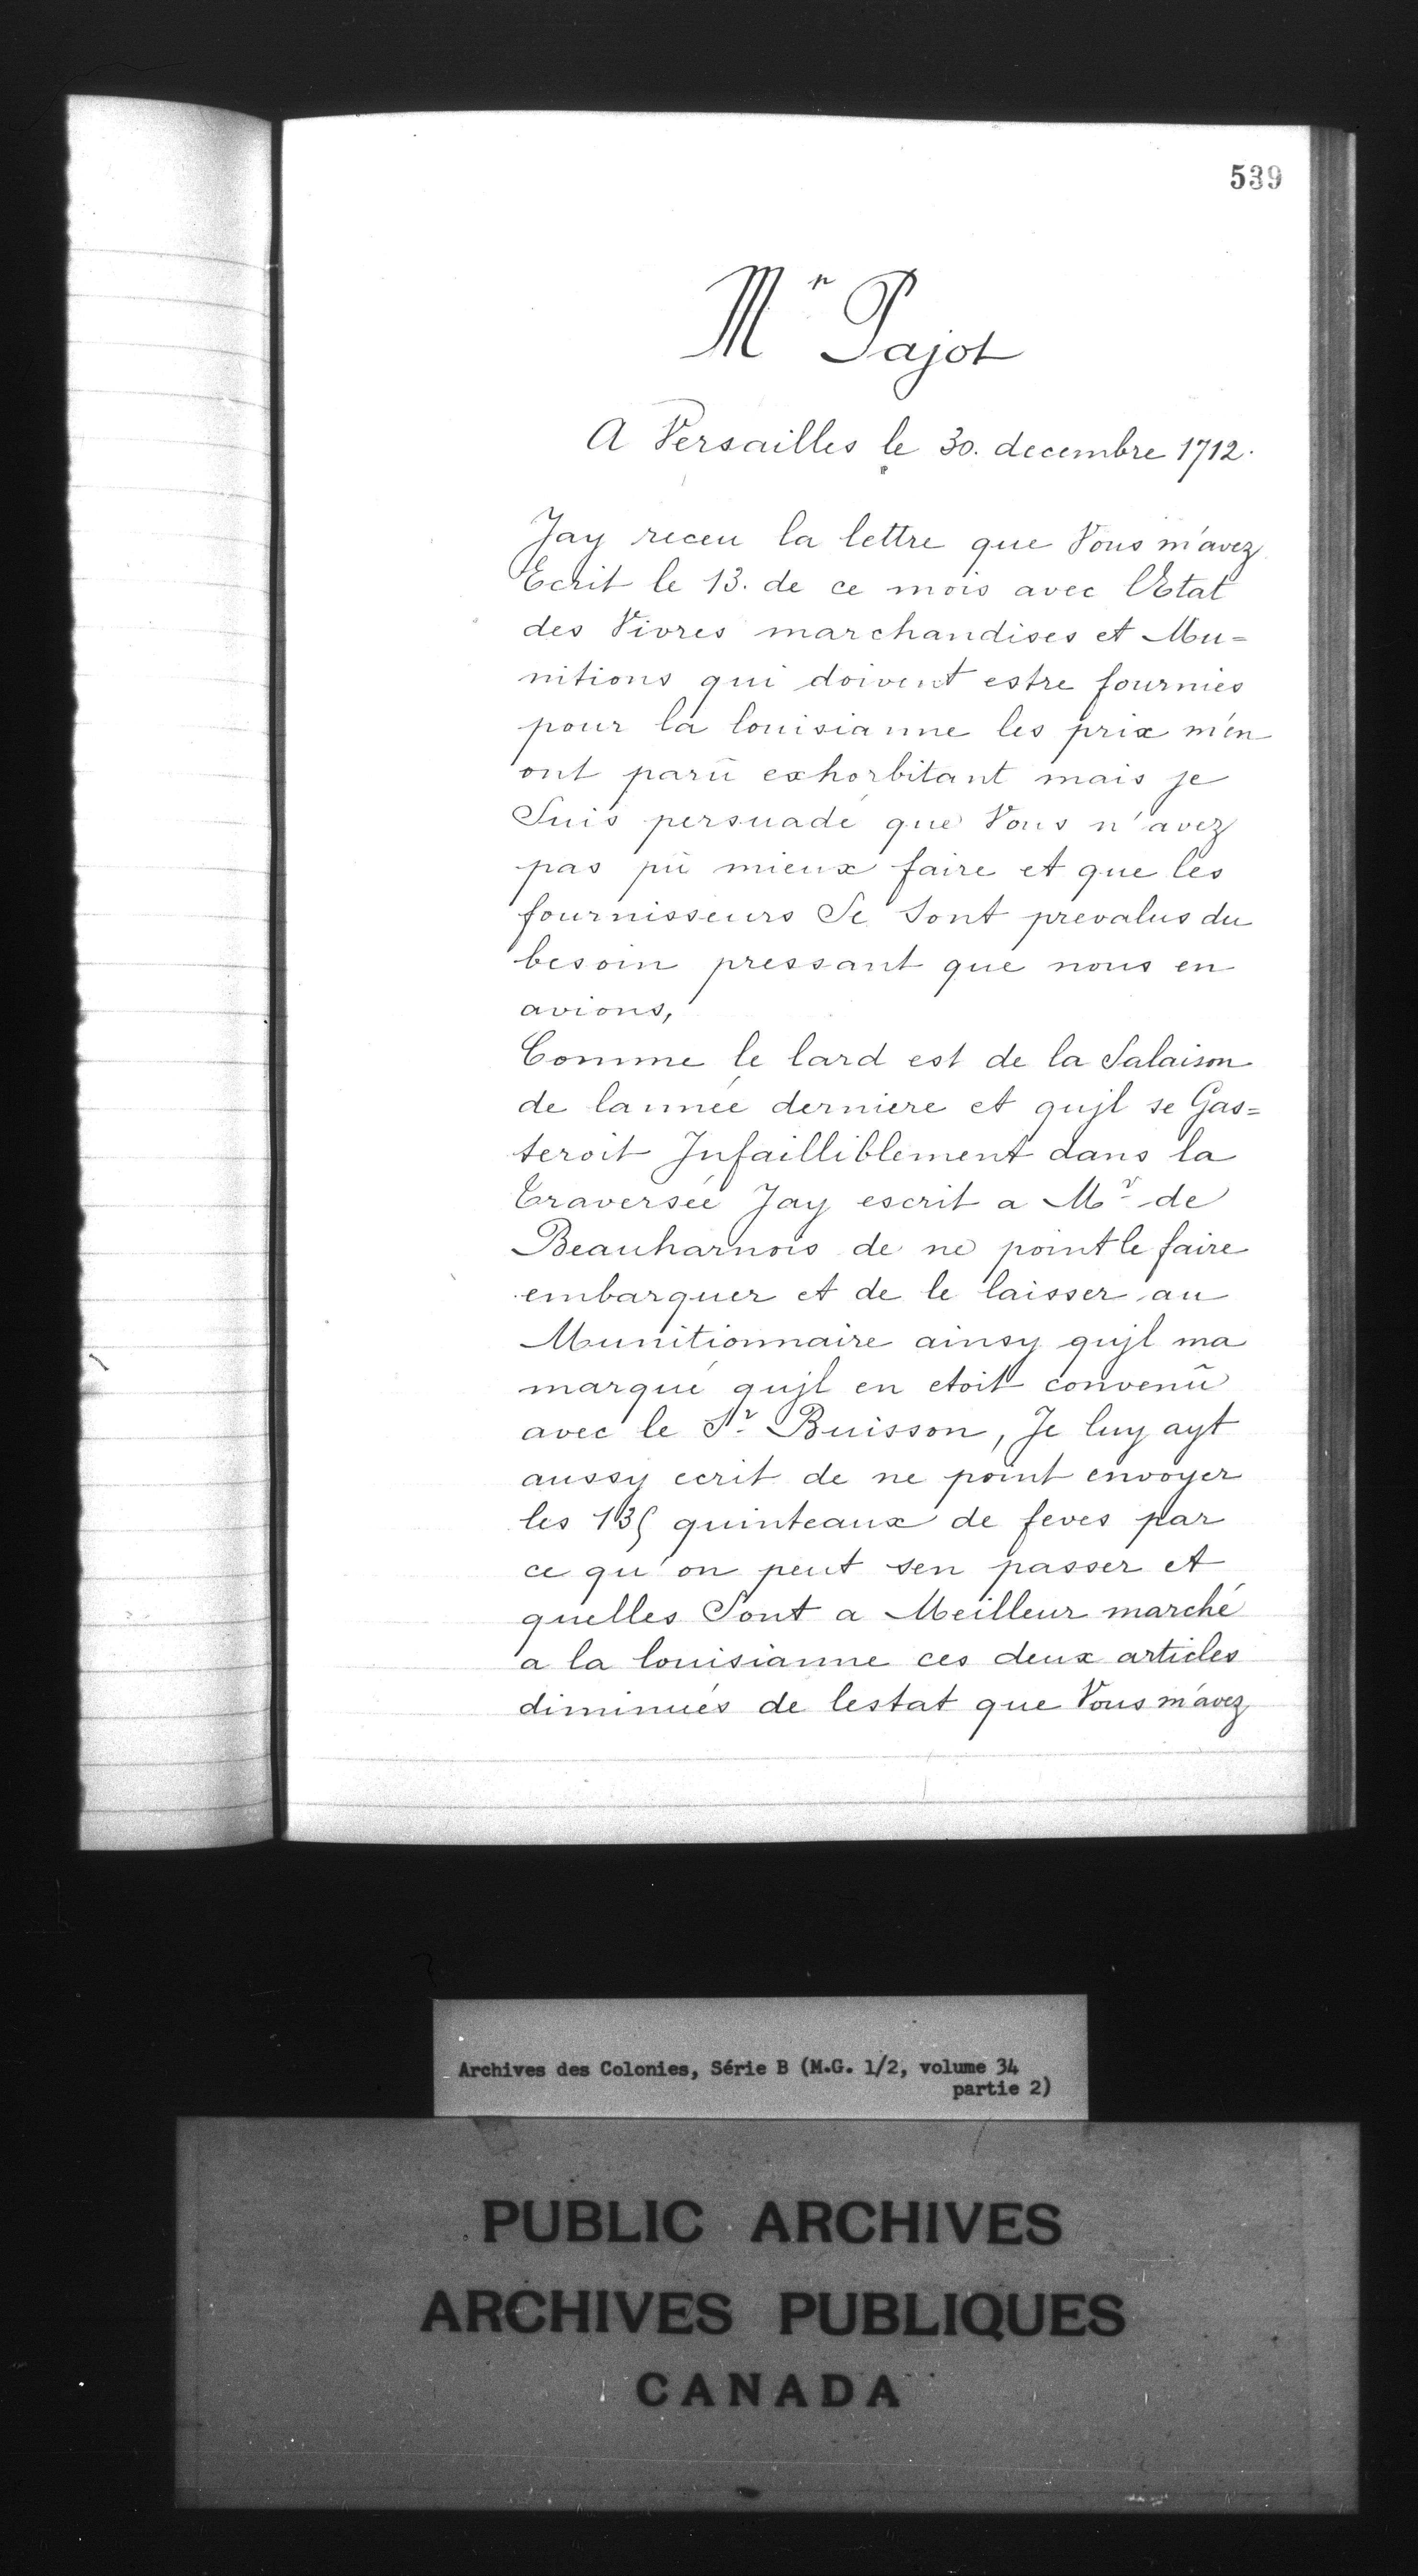 539
Mr Pajot
A Versailles le 30. decembre 1712.
Jay receu la lettre que Vous m'avez
Ecrit le 13. de ce mois avec l'Etat
des Vivres marchandises et Mu=
nitions qui doivent estre fournies
pour la louisianne les prix m'en
ont parû exhorbitant mais je
Suis persuadé que Vous n'avez
pas pû mieux faire et que les
fournisseurs Se Sont prevalus du
besoin pressant que nous en
avions,
Comme le lard est de la Salaison
de lannée derniere et qujl se Gas=
teroit Jnfailliblement dans la
Traversée Jay escrit a Mr de
Beauharnois de ne point le faire
embarquer et de le laisser au
Munitionnaire ainsy qujl ma
marqué qujl en etoit convenû
avec le Sr Buisson, Je luy ayt
aussy ecrit de ne point envoyer
les 135 quinteaux de feves par
ce qu'on peut sen passer et
quelles Sont a Meilleur marché
a la louisianne ces deux articles
diminués de lestat que Vous m'avez
Archives des Colonies, Série B (M.G. 1/2, volume 34
partie 2)
PUBLIC ARCHIVES
ARCHIVES PUBLIQUES
CANADA